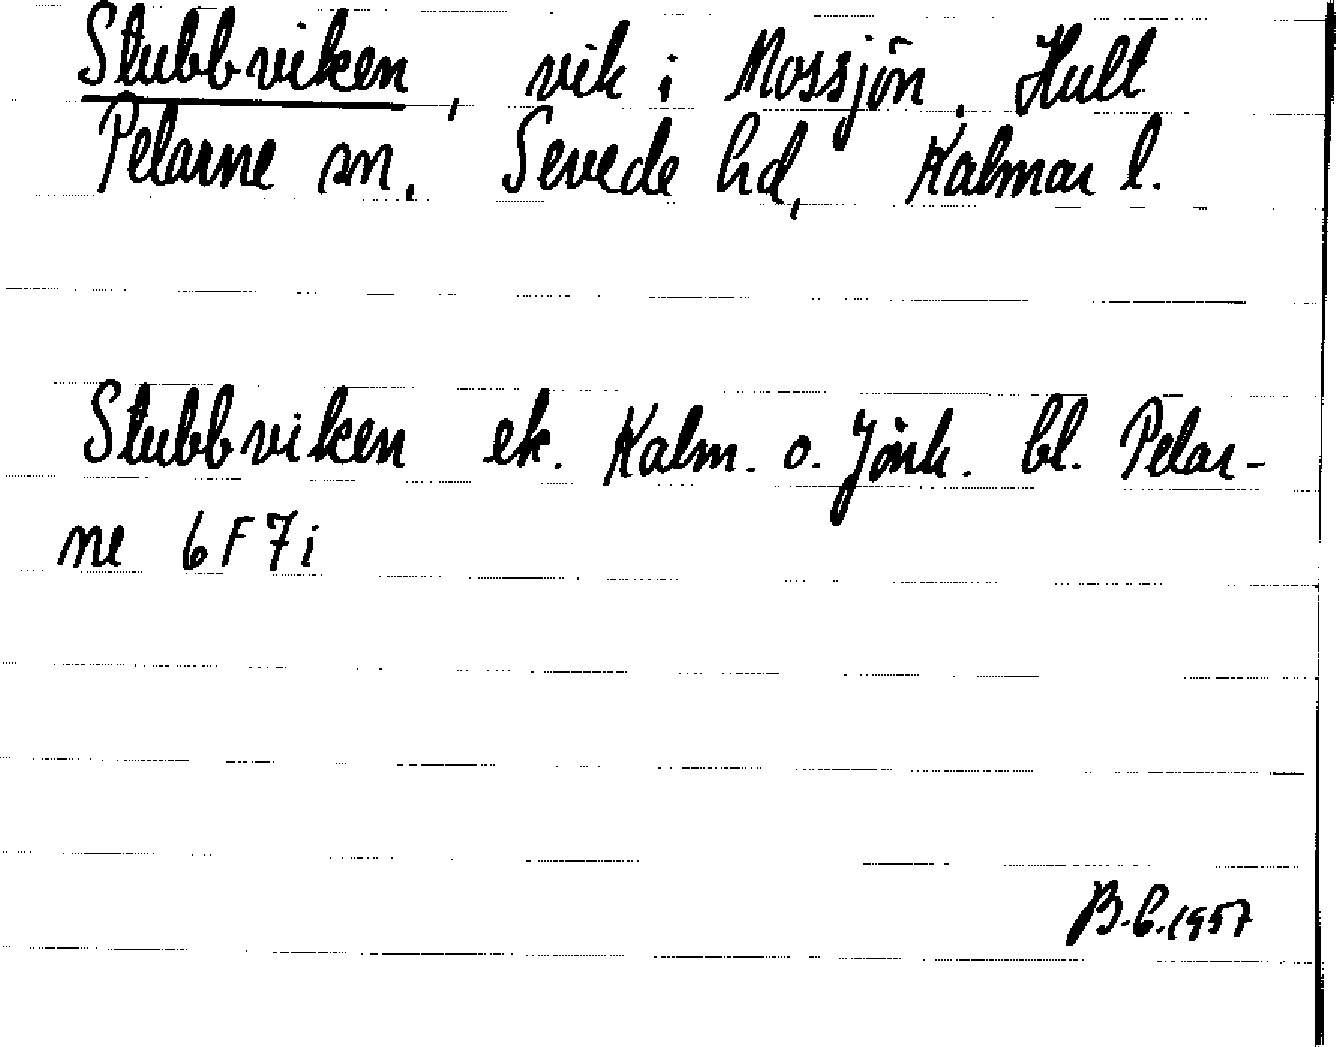 Stubbviken, vik i Mossjön. Hult
Pelarne sn. Sevede hd, Kalmar l.
Stubbviken ek. Kalm. o. Jönk. bl. Pelar-
ne 6F7i
B.C. 1957